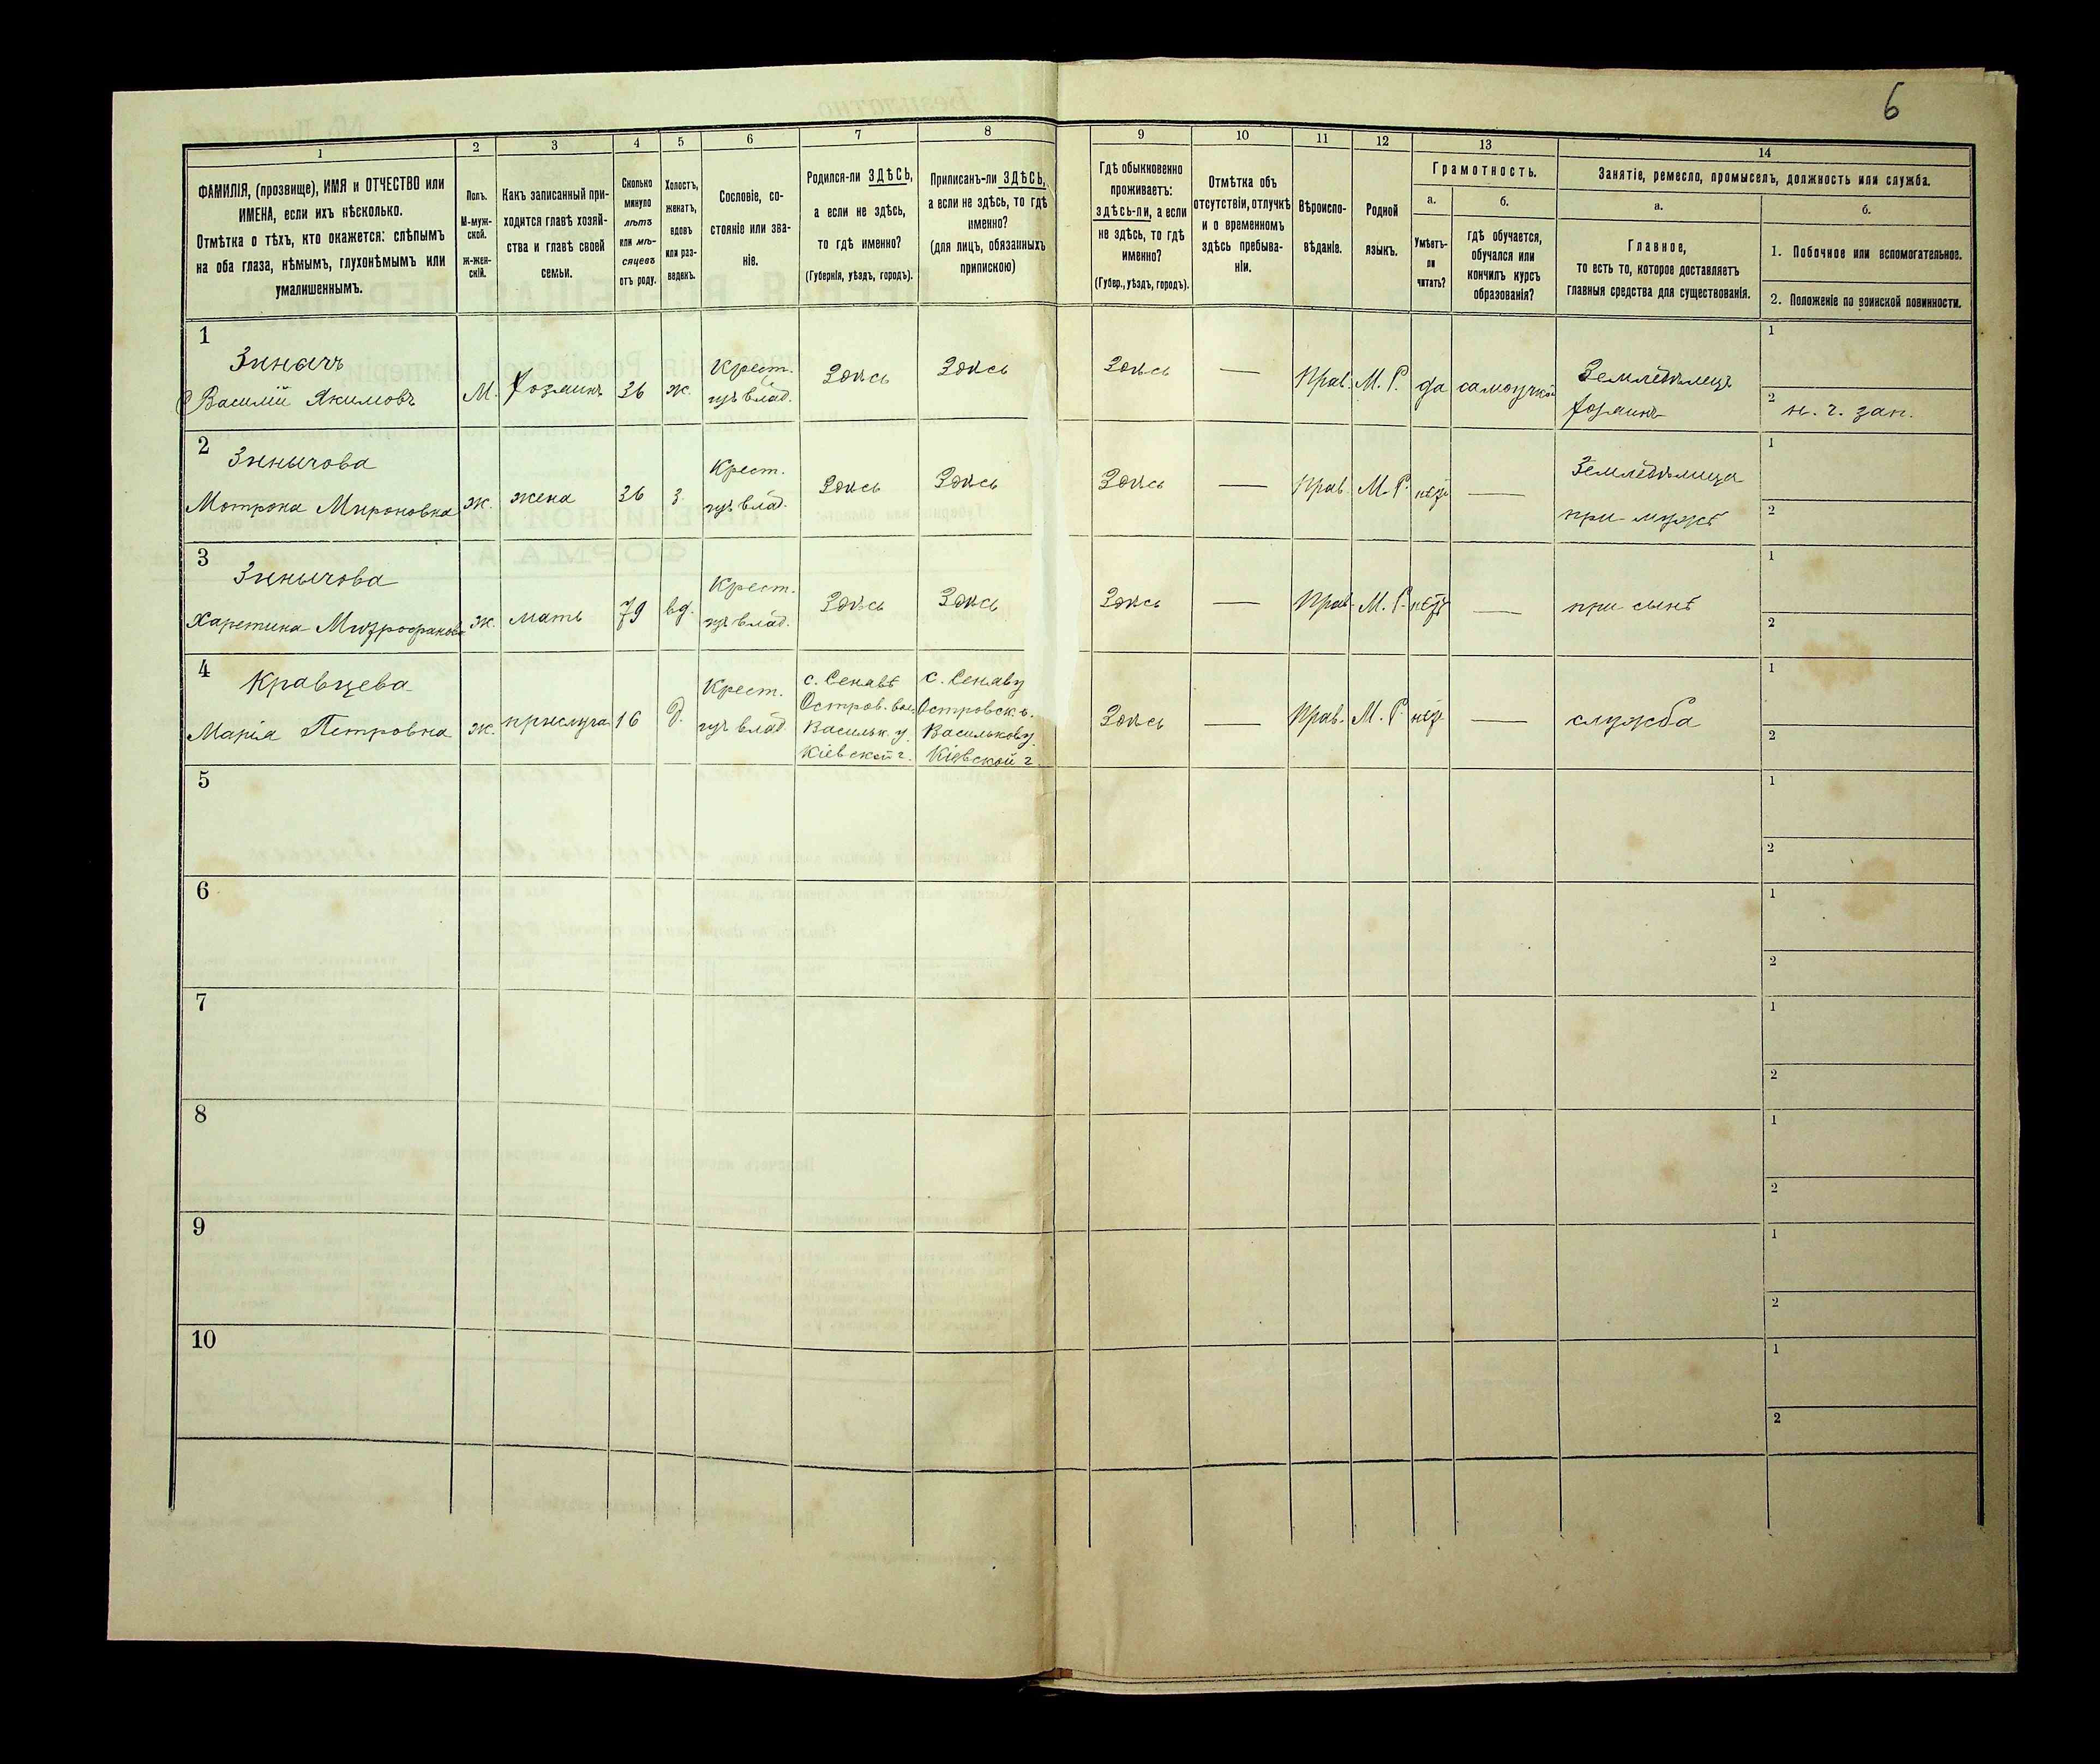 6
1
2
3
4
5
6
7
8
9
10
11
12
13
14
ФАМИЛІЯ, (прозвище), ИМЯ и ОТЧЕСТВО или
ИМЕНА, если ихъ нѣсколько.
Отмѣтка о тѣхъ, кто окажется: слѣпымъ
на оба глаза, нѣмымъ, глухонѣмымъ или
умалишеннымъ.
Полъ.
М-муж-
ской.
ж-жен-
скій.
Какъ записанный при-
ходится главѣ хозяй-
ства и главѣ своей
семьи.
Сколько
минуло
лѣтъ
или мѣ-
сяцевъ
отъ роду.
Холостъ,
женатъ,
вдовъ
или раз-
веденъ.
Сословіе, со-
стояніе или зва-
ніе.
Родился-ли ЗДѢСЬ,
а если не здѣсь,
то гдѣ именно?
(Губернія, уѣздъ, городъ).
Приписанъ-ли ЗДѢСЬ,
а если не здѣсь, то гдѣ
именно?
(для лицъ, обязанныхъ
припискою)
Гдѣ обыкновенно
проживаетъ:
здѣсь-ли, а если
не здѣсь, то гдѣ
именно?
(Губер., уѣздъ, городъ).
Отмѣтка объ
отсутствіи, отлучкѣ
и о временномъ
здѣсь пребыва-
ніи.
Вѣроиспо-
вѣданіе.
Родной
языкъ.
Грамотность.
а.
Умѣетъ-
ли
читать?
б.
гдѣ обучается,
обучался или
кончилъ курсъ
образованія?
Занятіе, ремесло, промыселъ, должность или служба.
а.
Главное,
то есть то, которое доставляетъ
главныя средства для существованія.
б.
1. Побочное или вспомогательное.
2. Положеніе по воинской повинности.
1
Зинычъ
Василій Якимовъ
М.
Хозяинъ
36
ж.
Крест.
изъ влад.
Здѣсь
Здѣсь
Здѣсь
—
Прав.
М. Р.
да
самоучкой
Земледѣлецъ
хозяинъ
1
2
н. г. зап.
2
Зинычова
Мотрона Мироновна
ж.
жена
36
з.
Крест.
изъ влад.
Здѣсь
Здѣсь
Здѣсь
—
Прав.
М. Р.
нѣтъ
—
Земледѣлица
при мужѣ
1
2
3
Зинычова
Харетина Митрофанова
ж.
мать
79
вд.
Крест.
изъ влад.
Здѣсь
Здѣсь
Здѣсь
—
Прав.
М. Р.
нѣтъ
—
при сынѣ
1
2
4
Кравцева
Марія Петровна
ж.
прислуга
16
д.
Крест.
изъ влад.
с. Сенавѣ
Остров. вол.
Васильк. у.
Кіевской г.
с. Сенаву
Островск. в.
Васильков у.
Кіевской г.
Здѣсь
—
Прав.
М. Р.
нѣтъ
—
служба
1
2
5
1
2
6
1
2
7
1
2
8
1
2
9
1
2
10
1
2